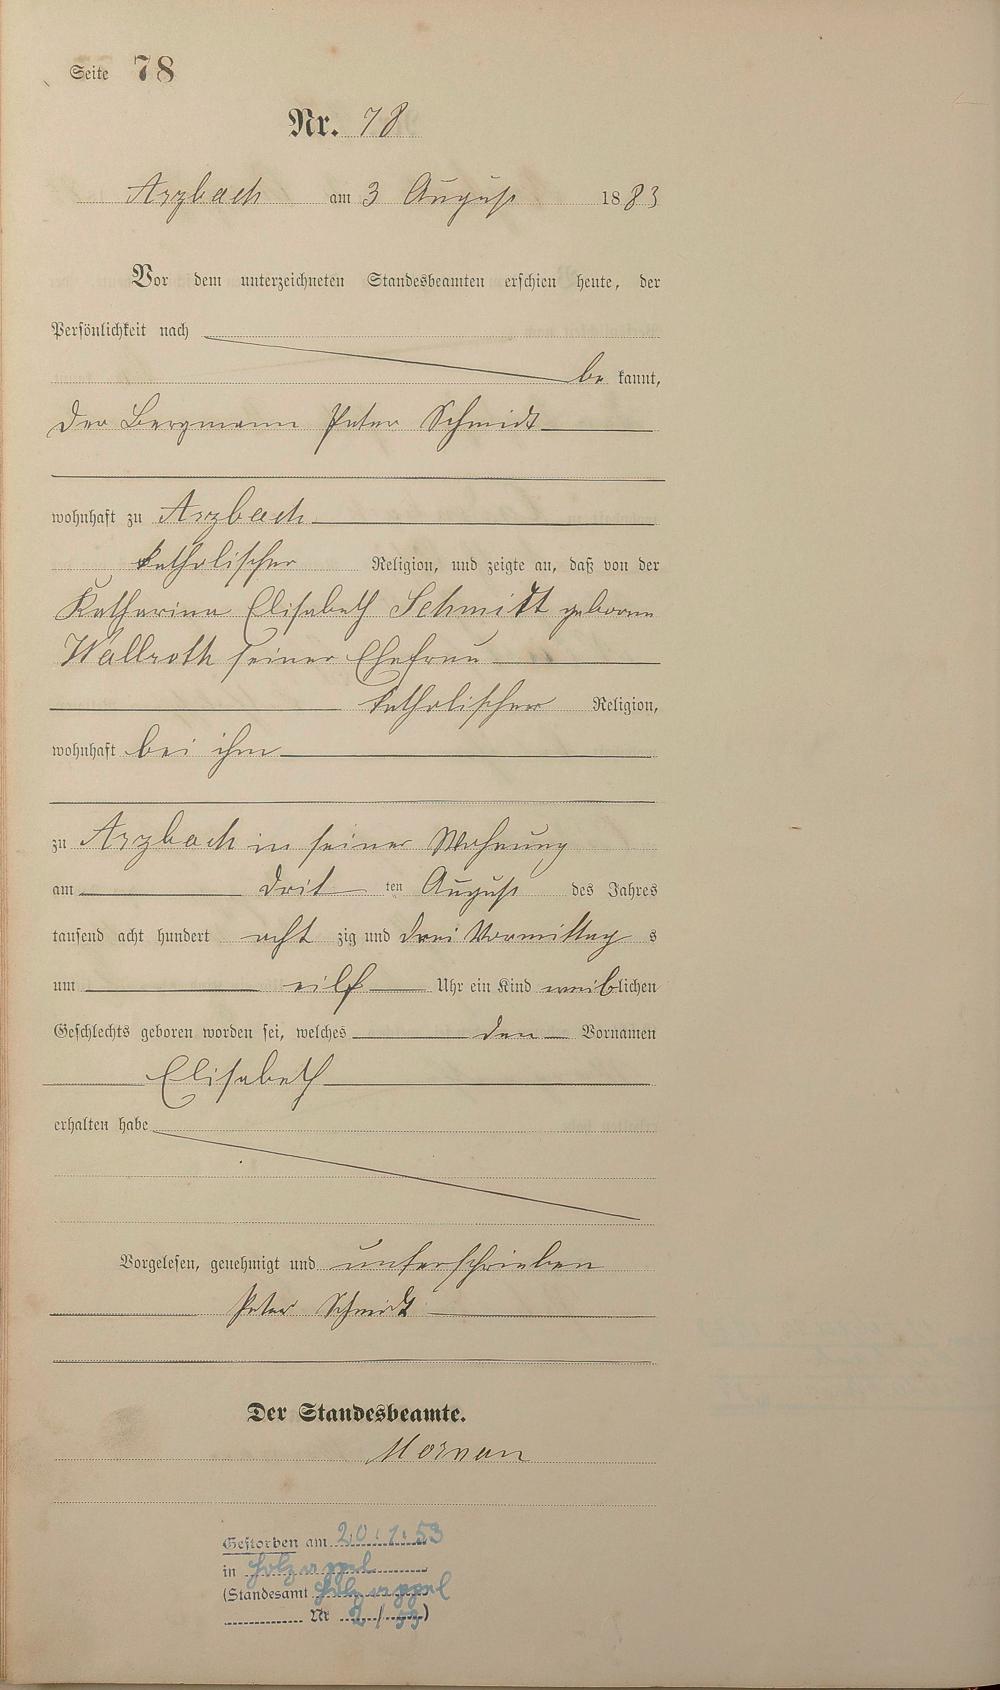 Seite 78
Nr. 78
Arzbach am 3 August 1883
Vor dem unterzeichneten Standesbeamten erschien heute, der
Persönlichkeit nach
be kannt,
der Bergmann Peter Schmidt
wohnhaft zu Arzbach
katholischer Religion, und zeigte an, daß von der
Katharina Elisabeth Schmitt geborne
Wallroth seiner Ehefrau
katholischer Religion,
wohnhaft bei ihm
zu Arzbach in seiner Wohnung
am drit ten August des Jahres
tausend acht hundert acht zig und drei Vormittag s
um eilf Uhr ein Kind weiblichen
Geschlechts geboren worden sei, welches den Vornamen
Elisabeth
erhalten habe
Vorgelesen, genehmigt und unterschrieben
Peter Schmidt
Der Standesbeamte.
Gestorben am 20.1.53
in Holzappel
(Standesamt Holzappel
Nr 2/53)